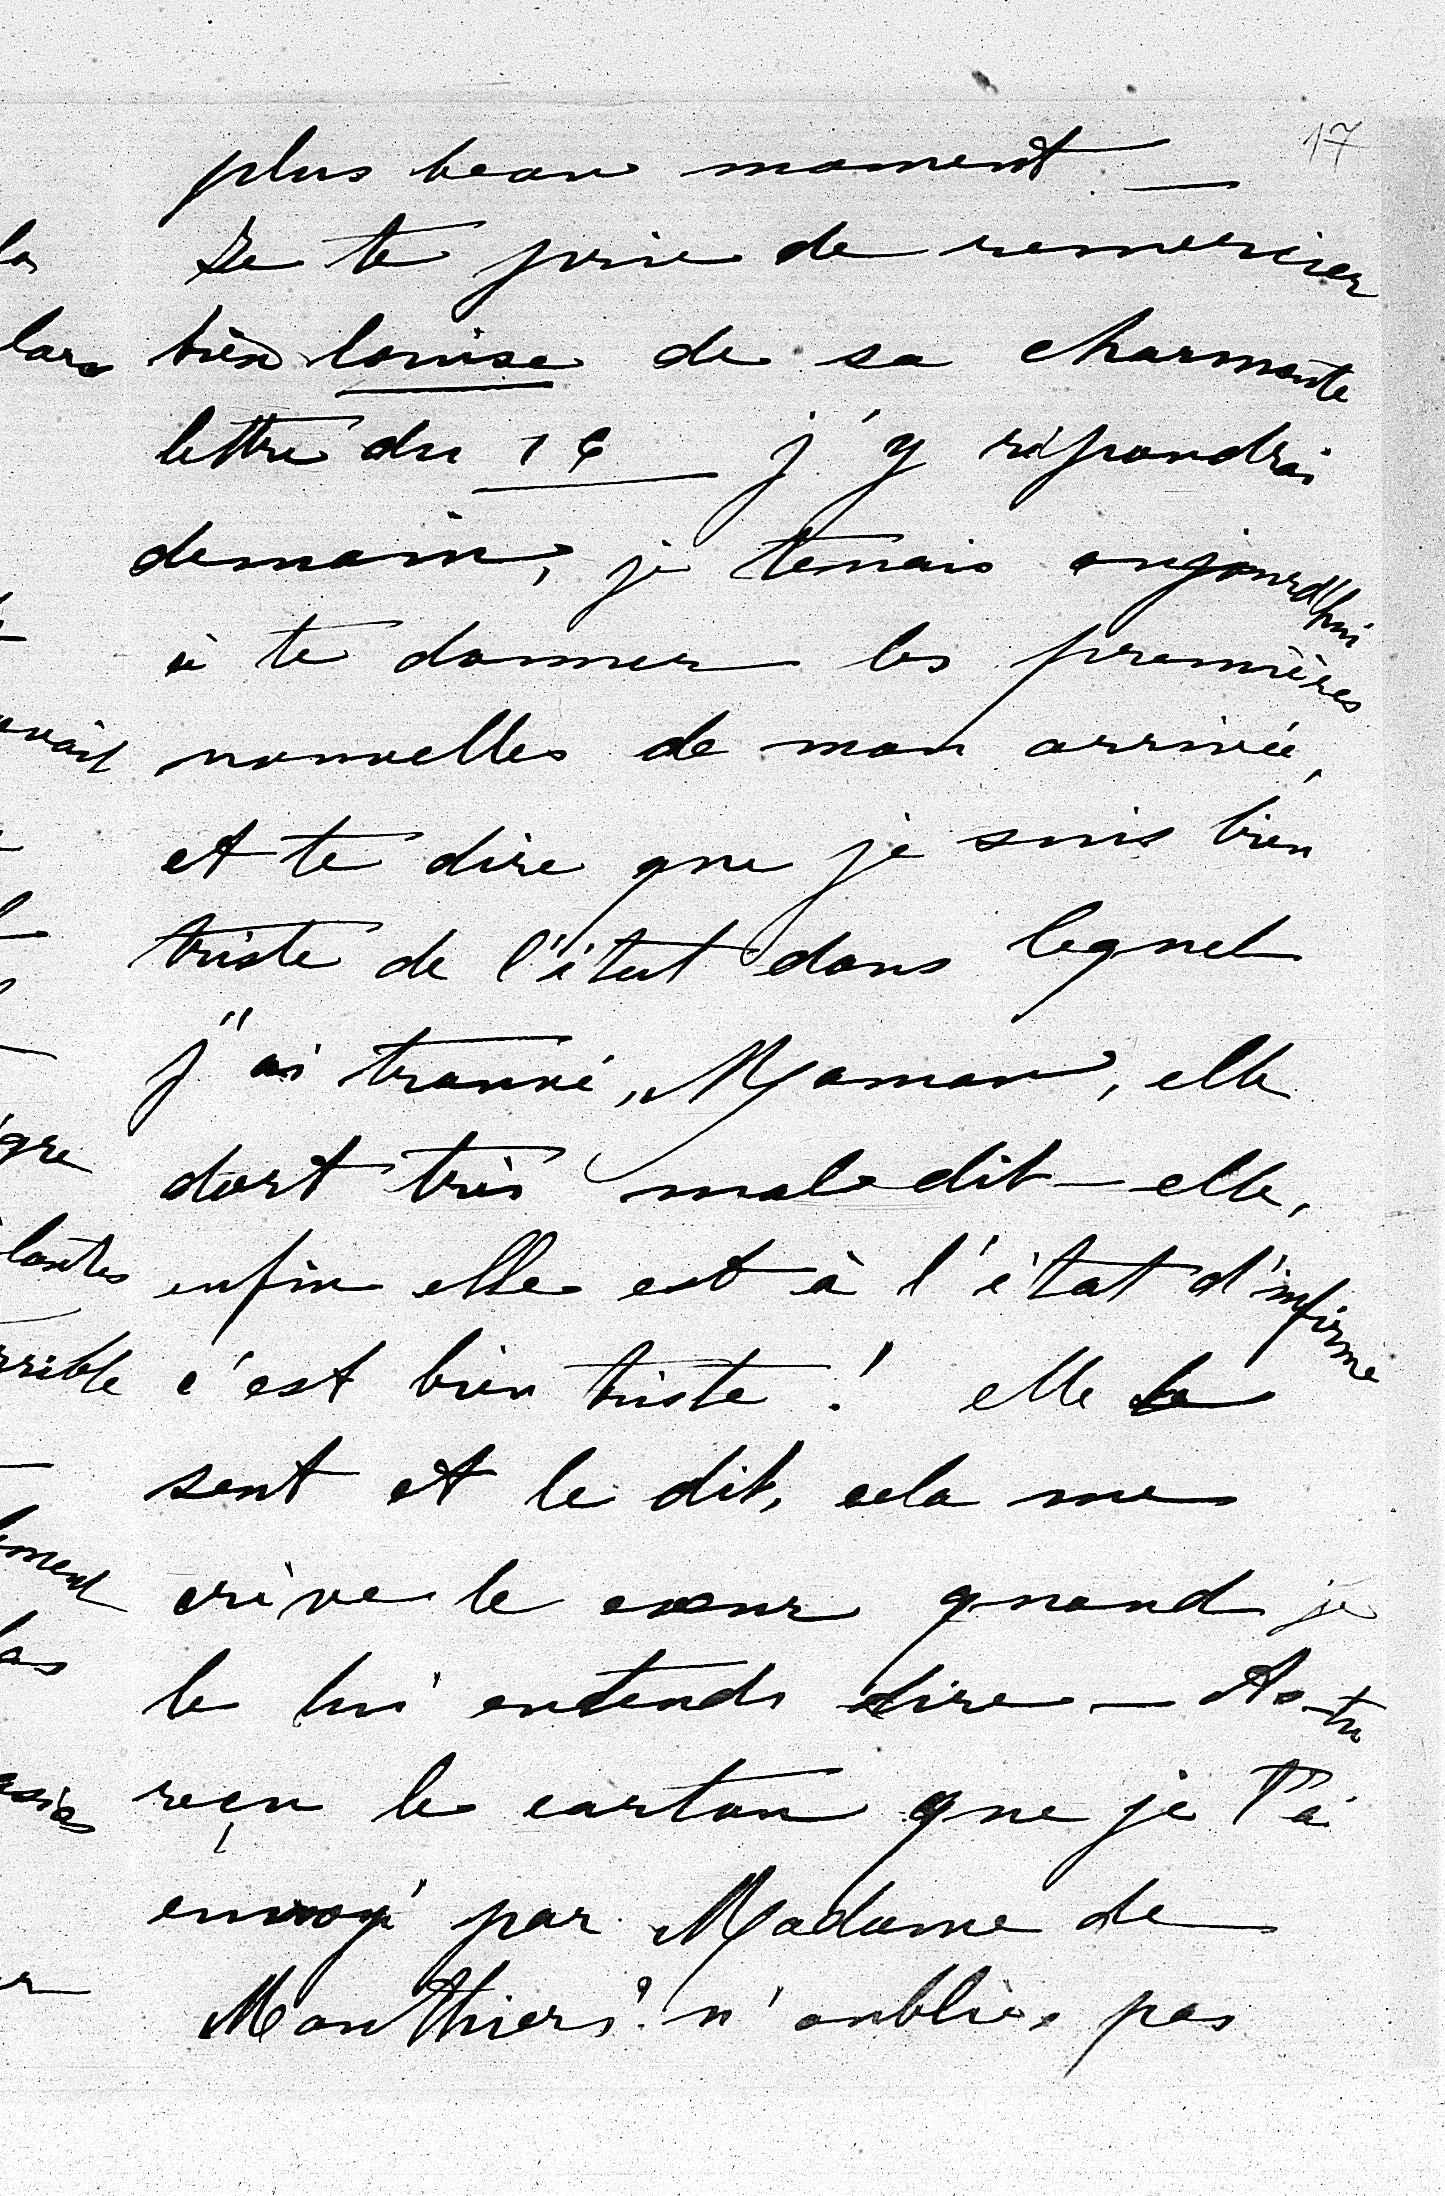 17
plus beau moment —
Je te prie de remercier
bien Louise de sa charmante
lettre du 16 — j'y répondrai
demain, je tenais aujourd'hui
à te donner les premières
nouvelles de mon arrivée,
et te dire que je suis bien
triste de l'état dans lequel
j'ai trouvé, Maman, elle
dort très mal dit-elle,
enfin elle est à l'état d'infirme
c'est bien triste ! elle le
sent et le dit, cela me
crève le cœur quand je
le lui entends dire — As-tu
reçu le carton que je t'ai
envoyé par Madame de
Monthiers ? n'oublies pas